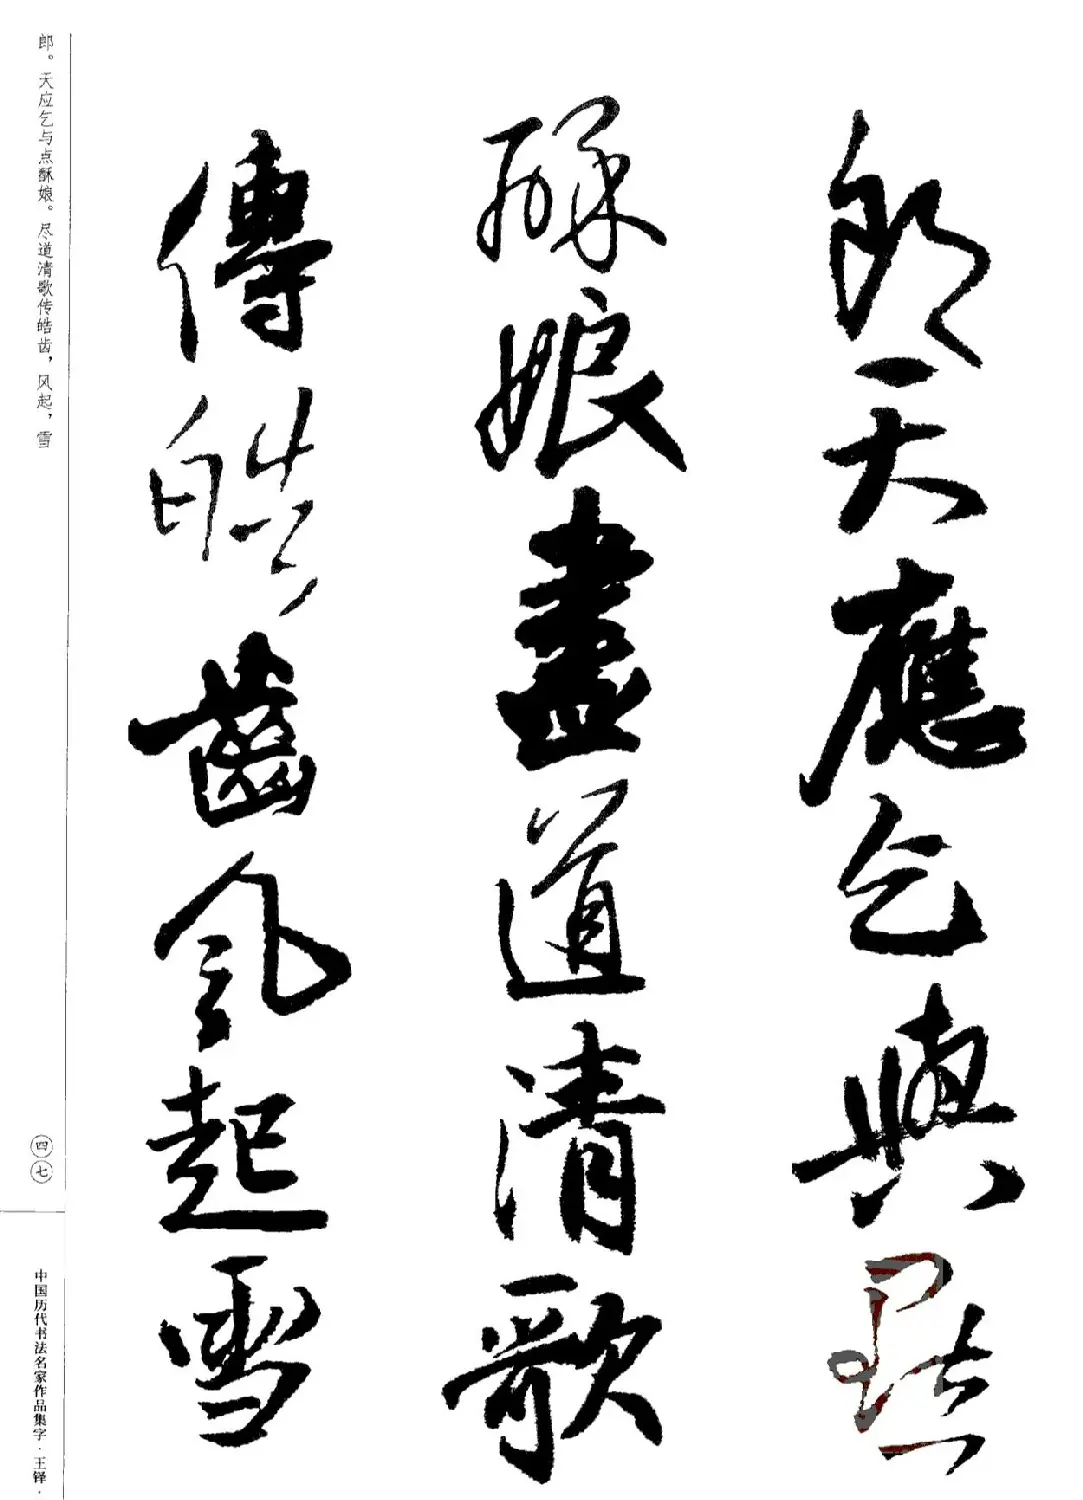 郎天應乞與點
酥娘盡道清歌
傳皓齒風起雪
郎。天应乞与点酥娘。尽道清歌传皓齿，风起，雪
四七
中国历代书法名家作品集字·王铎·